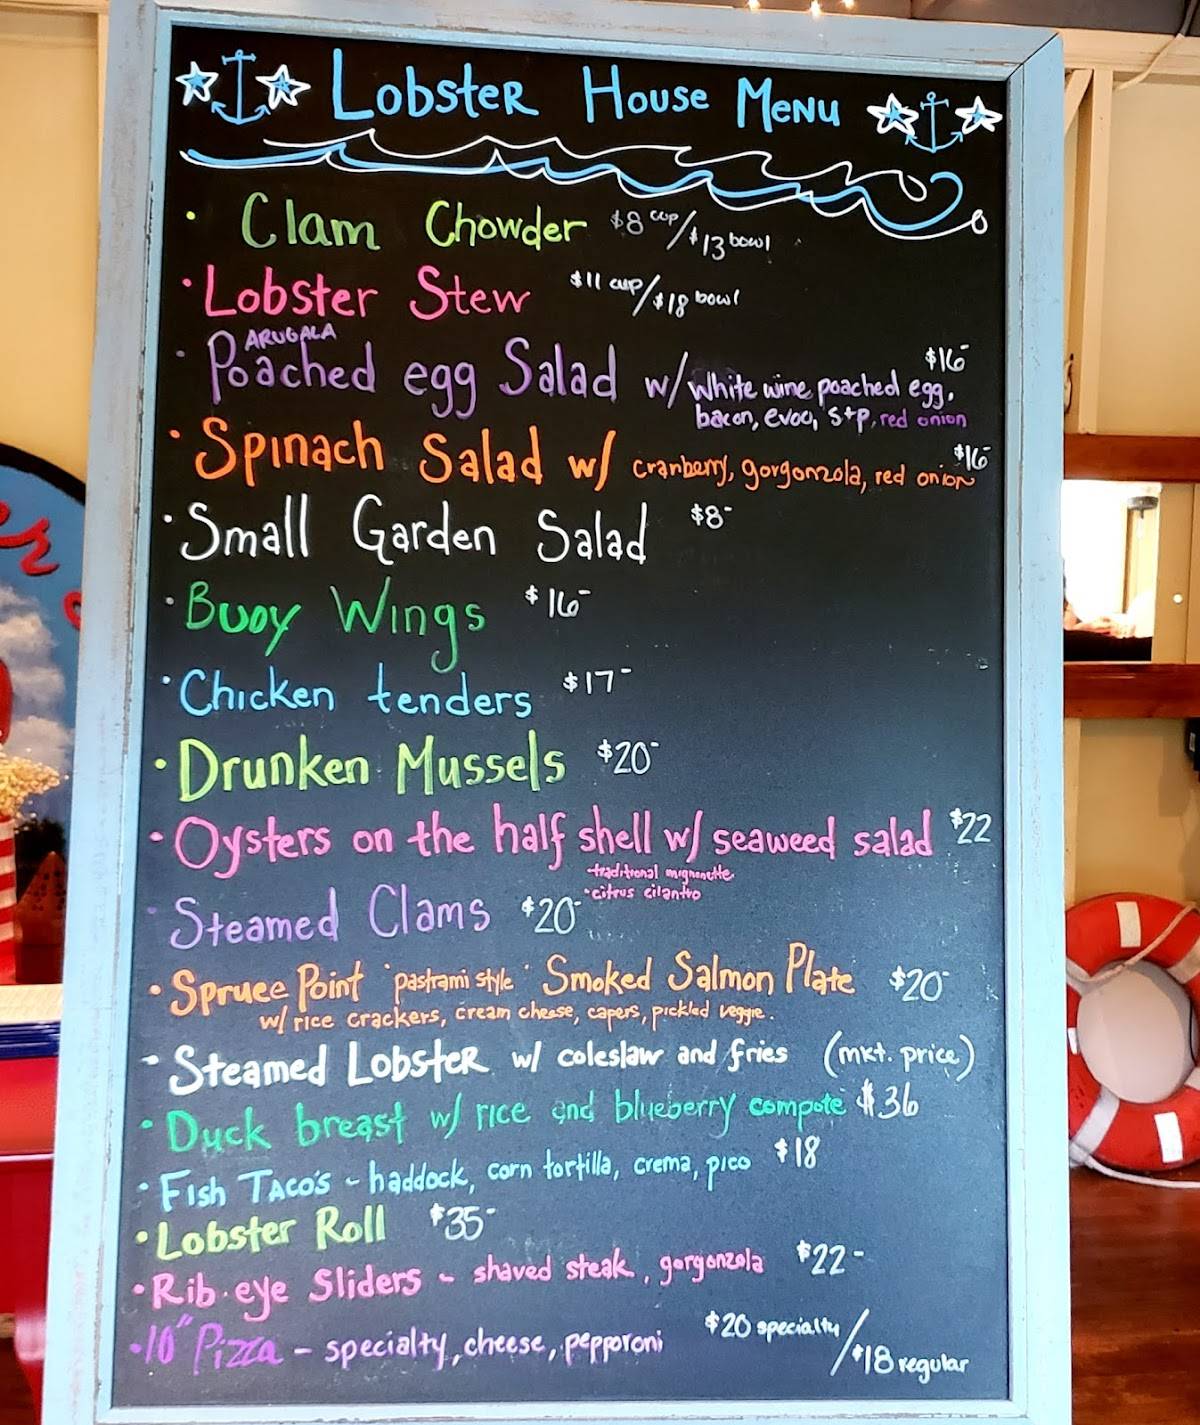 Lobster House Menu
· Clam Chowder $8 cup/$13 bowl
· Lobster Stew $11 cup/$18 bowl
ARUGALA
· Poached egg Salad w/ white wine poached egg, $16-
bacon, evoo, s+p, red onion
· Spinach Salad w/ cranberry, gorgonzola, red onion $16-
· Small Garden Salad $8-
· Buoy Wings $16-
· Chicken tenders $17-
· Drunken Mussels $20-
· Oysters on the half shell w/ seaweed salad $22
- traditional mignonette
- citrus cilantro
· Steamed Clams $20-
· Spruce Point 'pastrami style' Smoked Salmon Plate $20-
w/ rice crackers, cream cheese, capers, pickled veggie.
- Steamed Lobster w/ coleslaw and fries (mkt. price)
· Duck breast w/ rice and blueberry compote $36
· Fish Taco's - haddock, corn tortilla, crema, pico $18
· Lobster Roll $35-
· Rib·eye Sliders - shaved steak, gorgonzola $22-
· 10" Pizza - specialty, cheese, pepporoni $20 specialty/$18 regular